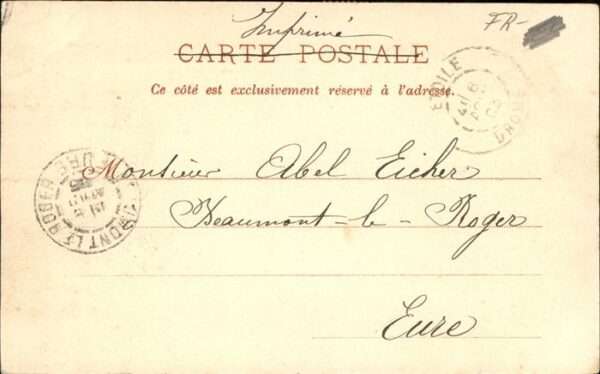 Imprimé
FR-
CARTE POSTALE
Ce côté est exclusivement réservé à l'adresse.
ETOILE
DROME
Monsieur Abel Eicher
Beaumont-le-Roger
Eure
BEAUMONT LE ROGER
EURE